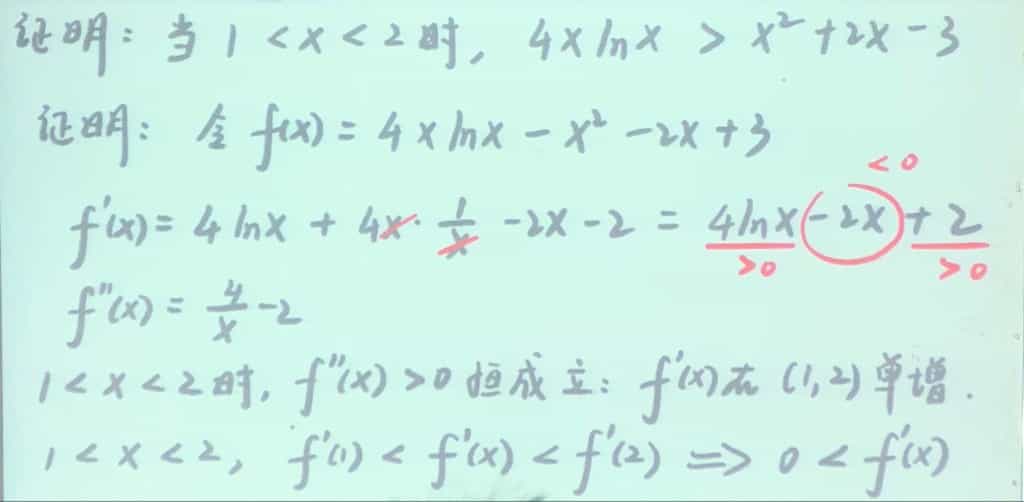 证明: 当 1 < x < 2 时, 4x ln x > x² + 2x - 3
证明: 令 f(x) = 4x ln x - x² - 2x + 3
< 0
f'(x) = 4 ln x + 4x · 1/x - 2x - 2 = 4 ln x - 2x + 2
> 0 > 0
f''(x) = 4/x - 2
1 < x < 2 时, f''(x) > 0 恒成立: f'(x) 在 (1,2) 单增.
1 < x < 2, f'(1) < f'(x) < f'(2) => 0 < f'(x)